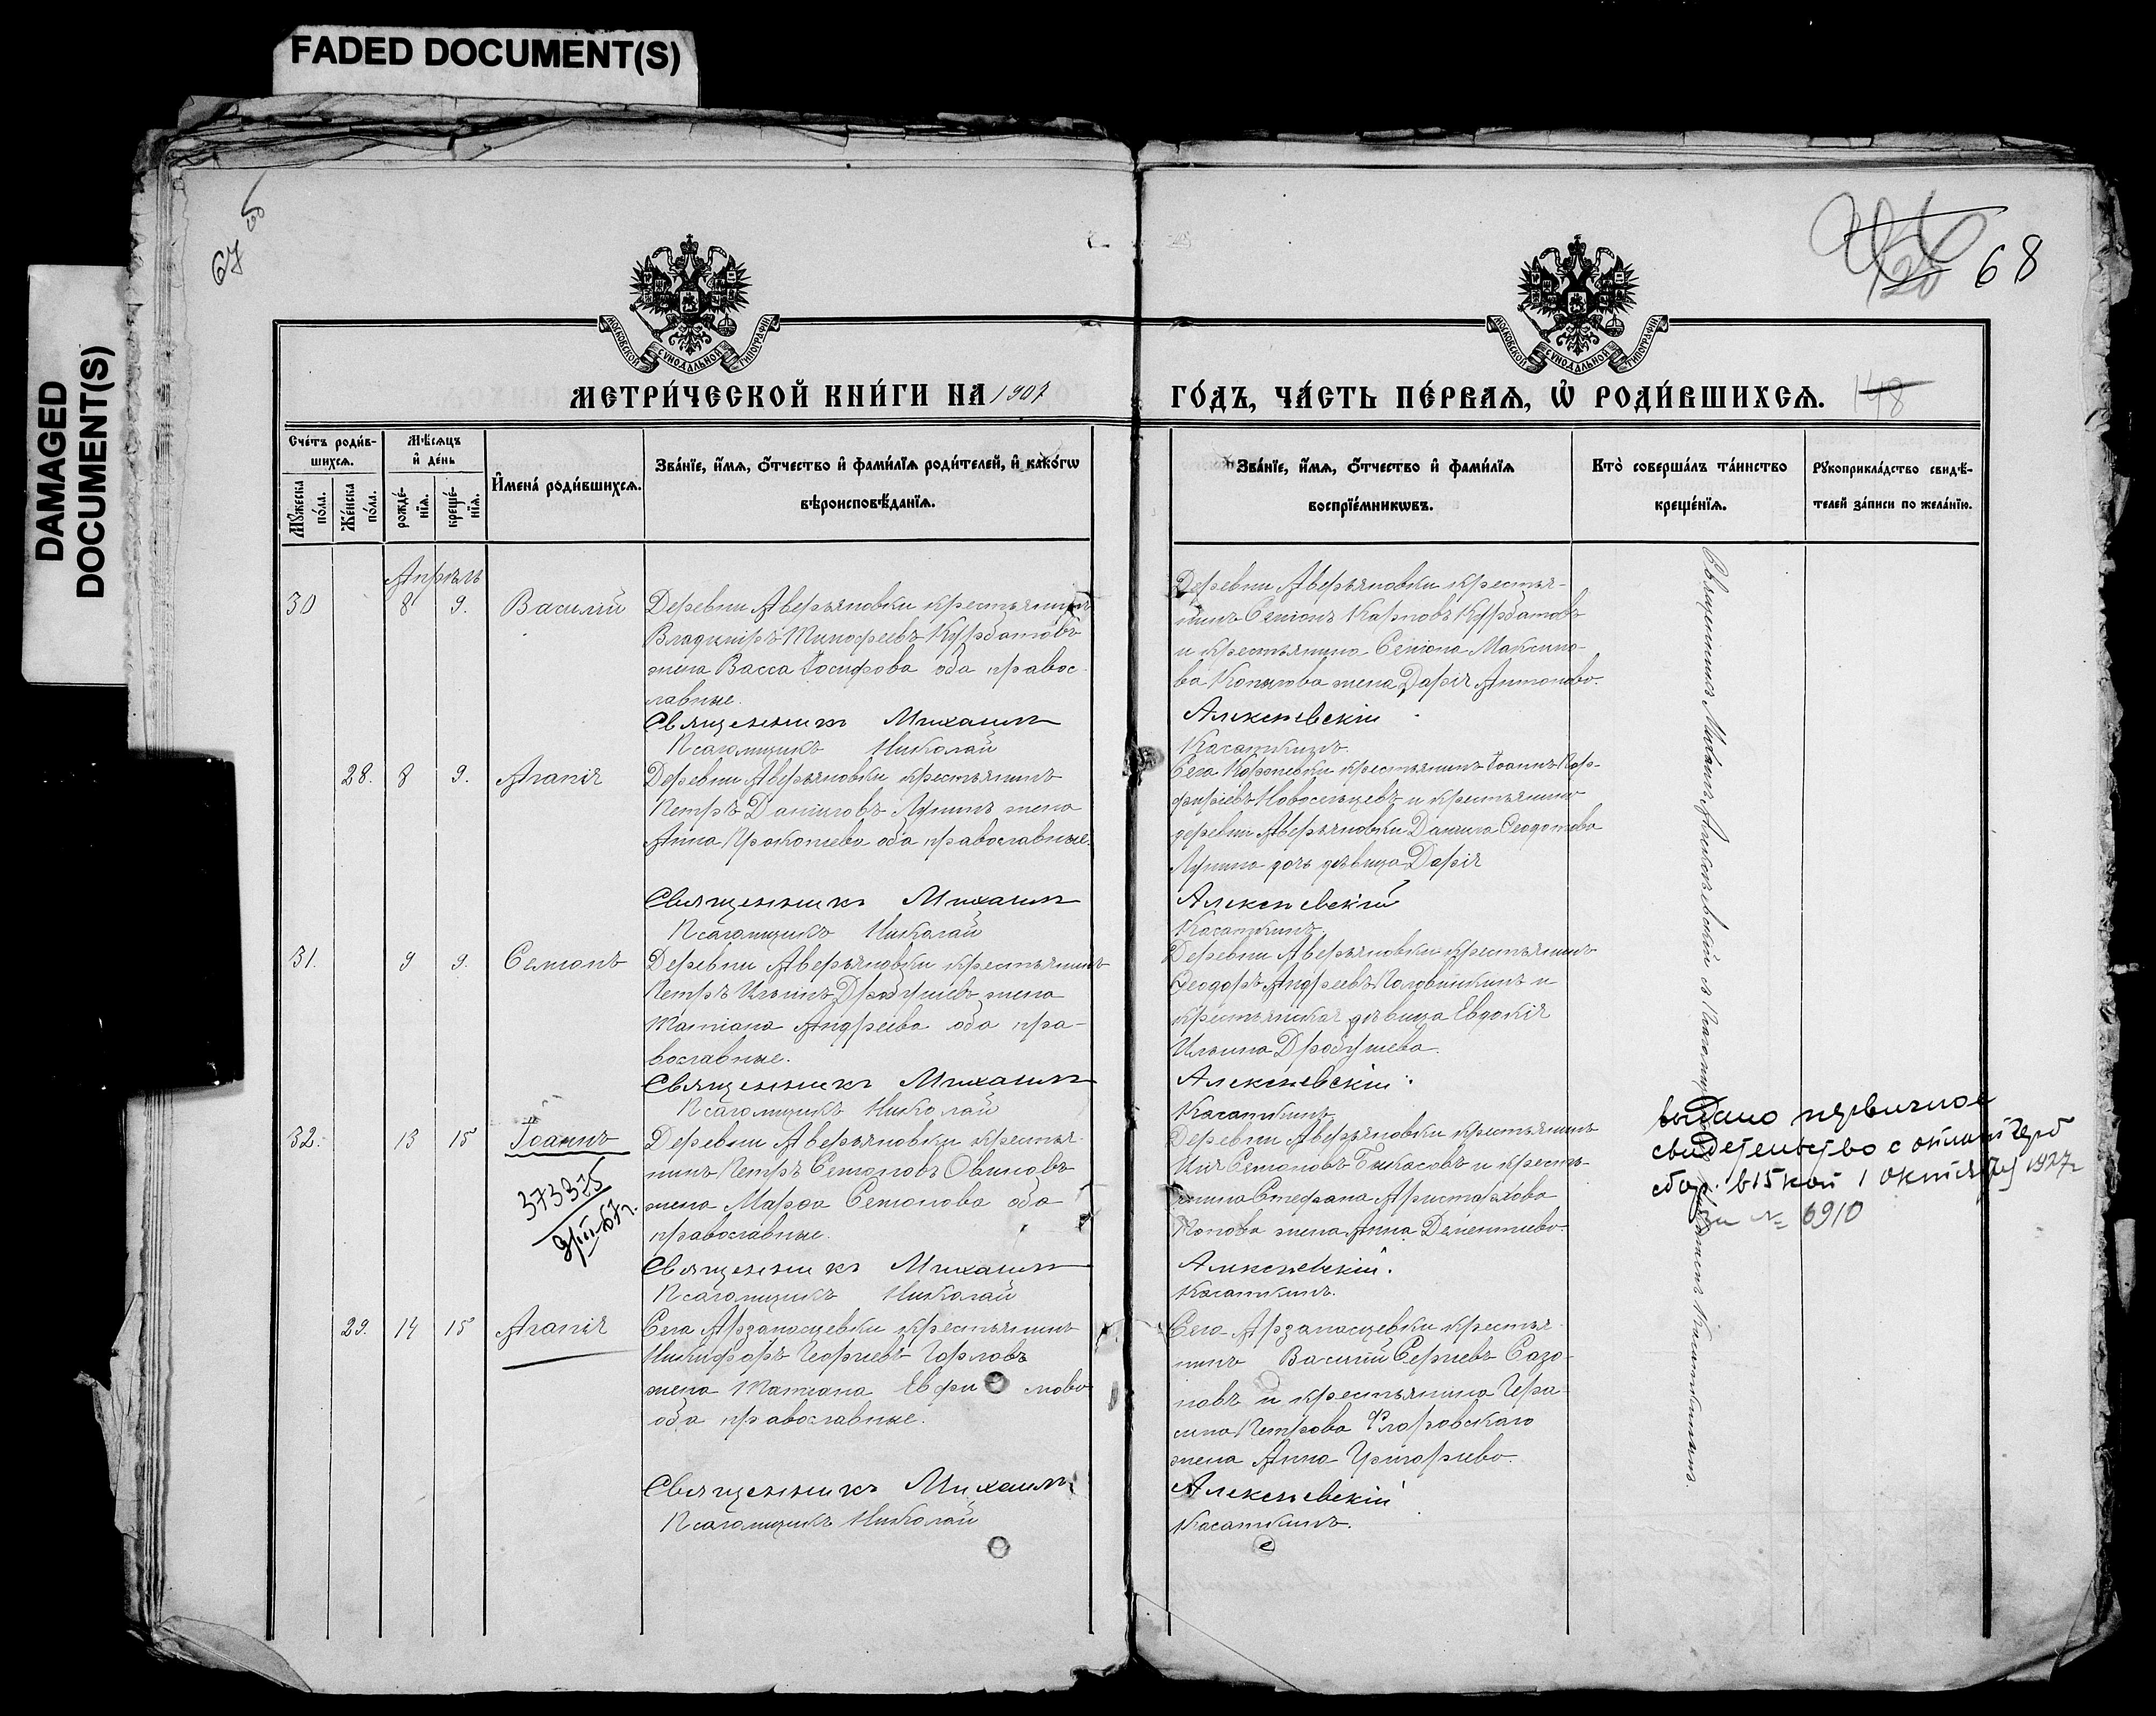 FADED DOCUMENT(S)
DAMAGED
DOCUMENT(S)
67 об
68
148
МОСКОВСКОЙ СѴНОДАЛЬНОЙ ТИПОГРАФІИ
МОСКОВСКОЙ СѴНОДАЛЬНОЙ ТИПОГРАФІИ
МЕТРИ́ЧЕСКОЙ КНИ́ГИ НА 1907
ГО́ДЪ, ЧА́СТЬ ПЕ́РВАѦ, Ѽ РОДИ́ВШИХСѦ.
Сче́тъ роди́в-
шихсѧ.
Мꙋ́жеска по́ла.
Же́нска по́ла.
Мѣ́сѧцъ
и҆ де́нь
рожде́-
нїѧ.
креще́-
нїѧ.
И҆мена̀ роди́вшихсѧ.
Зва́нїе, и҆́мѧ, ѻ҆́тчество и҆ фами́лїѧ роди́телей, и҆ како́гѡ
вѣроисповѣ́данїѧ.
Зва́нїе, и҆́мѧ, ѻ҆́тчество и҆ фами́лїѧ
воспрїе́мникѡвъ.
Кто̀ соверша́лъ та́инство
креще́нїѧ.
Рꙋкоприкла́дство свидѣ́-
телей за́писи по жела́нїю.
Апрѣль
30 8 9. Василій Деревни Аверьяновки крестьянинъ
Владиміръ Тимофеевъ Курбатовъ
жена Васса Іосифова оба правос-
лавные.
Священникъ Михаилъ
Псаломщикъ Николай
Деревни Аверьяновки крестья-
нинъ Семіонъ Карповъ Курбатовъ
и крестьянина Семіона Максимо-
ва Копылова жена Дарія Антонова.
Алексѣевскій
Касаткинъ.
28. 8 9. Агапія Деревни Аверьяновки крестьянинъ
Петръ Даніиловъ Лунинъ жена
Анна Прокопіева оба православные.
Священникъ Михаилъ
Псаломщикъ Николай
Села Корнеевки крестьянинъ Іоаннъ Пор-
фиріевъ Новосельцевъ и крестьянина
деревни Аверьяновки Даніила Ѳеодотова
Лунина дочь дѣвица Дарія
Алексѣевскій
Касаткинъ.
31. 9 9. Семіонъ Деревни Аверьяновки крестьянинъ
Петръ Ильинъ Дробушевъ жена
Татіана Андреева оба пра-
вославные.
Священникъ Михаилъ
Псаломщикъ Николай
Деревни Аверьяновки крестьянинъ
Ѳеодоръ Андреевъ Половинкинъ и
крестьянская дѣвица Евдокія
Ильина Дробушева.
Алексѣевскій.
Касаткинъ.
32. 13 15 Іоаннъ Деревни Аверьяновки крестья-
нинъ Петръ Семіоновъ Овиновъ
жена Марѳа Семіонова оба
православные.
Священникъ Михаилъ
Псаломщикъ Николай
373375
Деревни Аверьяновки крестьянинъ
Илія Семіоновъ Бикасовъ и кресть-
янина Стефана Аристархова
Попова жена Анна Дементиева.
Алексѣевскій.
Касаткинъ.
29. 14 15 Агапія Села Арзамасцевки крестьянинъ
Никифоръ Георгіевъ Горловъ
жена Татіана Евфи мова
оба православные.
Священникъ Михаилъ
Псаломщикъ Николай
Села Арзамасцевки крестья-
нинъ Василій Сергиевъ Сазо-
новъ и крестьянина Гера-
сима Петрова Флоровскаго
жена Анна Григориева.
Алексѣевскій
Касаткинъ.
Священникъ Михаилъ Алексѣевскій съ Псаломщикомъ Касаткинымъ.
выдано первичное
свидетельство с оплат. герб
сбор. в 15 коп 1 октября 1927 г
за № 6910